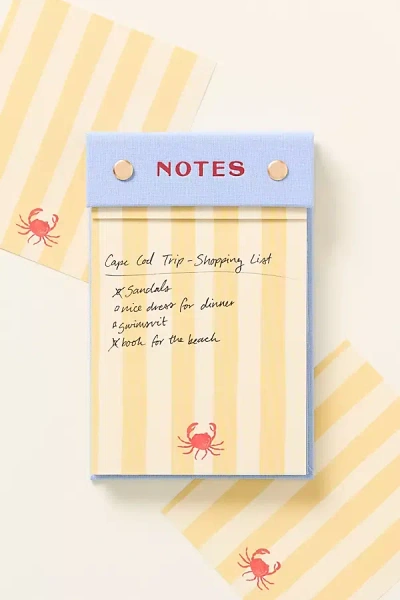 NOTES
Cape Cod Trip - Shopping List
Sandals
nice dress for dinner
swimsuit
book for the beach